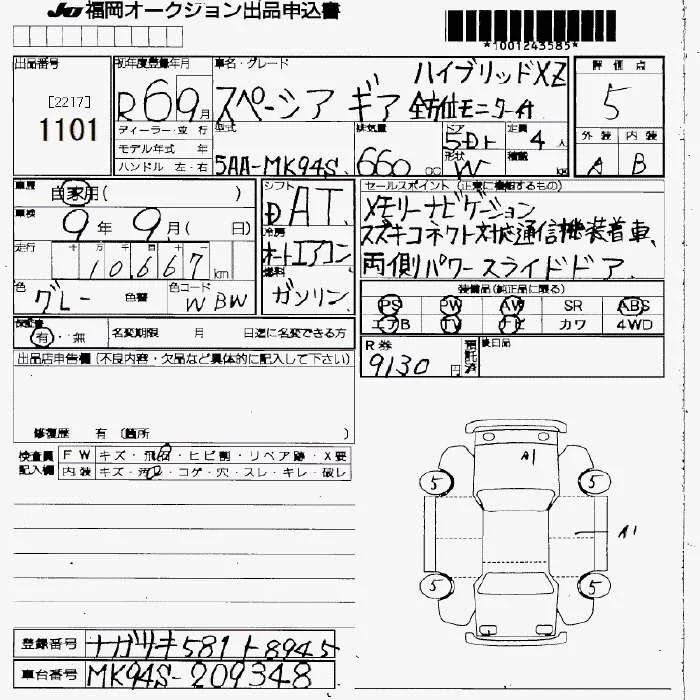 JU 福岡オークション出品申込書
*1001243585*
出品番号
[2217]
1101
初年度登録年月
R6 9月
ディーラー・並行
モデル年式 年
ハンドル 左・右
車名・グレード
ハイブリッドXZ
スペーシア ギア 全方位モニター付
型式
5AA-MK94S
排気量
660 cc
ドア
5Dr
形状
W
定員
4人
積載
kg
評価点
5
外装 内装
A B
車歴
自家用( )
車検
9年 9月( 日)
走行
十 万 千 百 十
10667 km
色
グレー 色替
色コード
WBW
シフト
D AT
冷房
オートエアコン
燃料
ガソリン
セールスポイント(正常に機能するもの)
メモリーナビゲーション
スズキコネクト対応通信機装着車、
両側パワースライドドア
装備品(純正品に限る)
PS PW AW SR ABS
エアB TV ナビ カワ 4WD
保証書
有・無
名変期限 月 日迄に名変できる方
R券
9130円
預託済
後日品
出品店申告欄(不良内容・欠品など具体的に記入して下さい)
修復歴 有(箇所 )
検査員記入欄
FW キズ・飛石・ヒビ割・リペア跡・X要
内装 キズ・汚れ・コゲ・穴・スレ・キレ・破レ
A1
5 5
A1
5 5
登録番号 ナガサキ581ト8945
車台番号 MK94S-209348